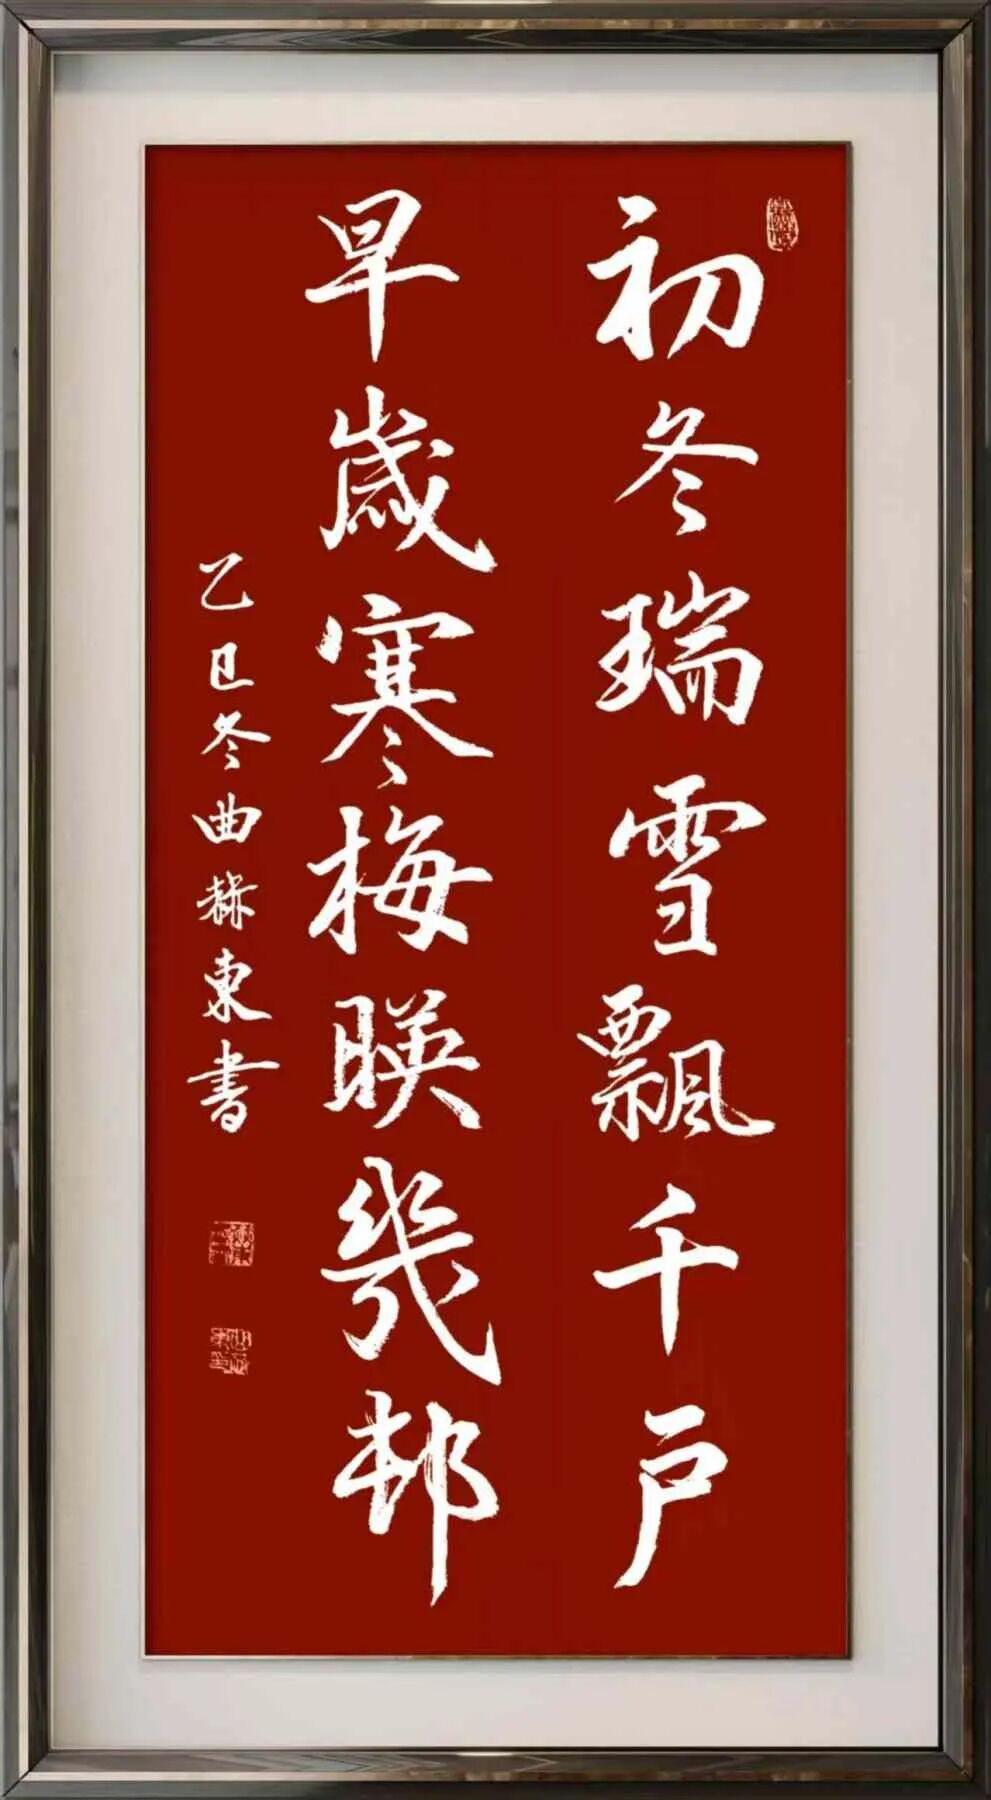 初冬瑞雪飄千戶
早歲寒梅暎幾邨
乙巳冬曲赫東書